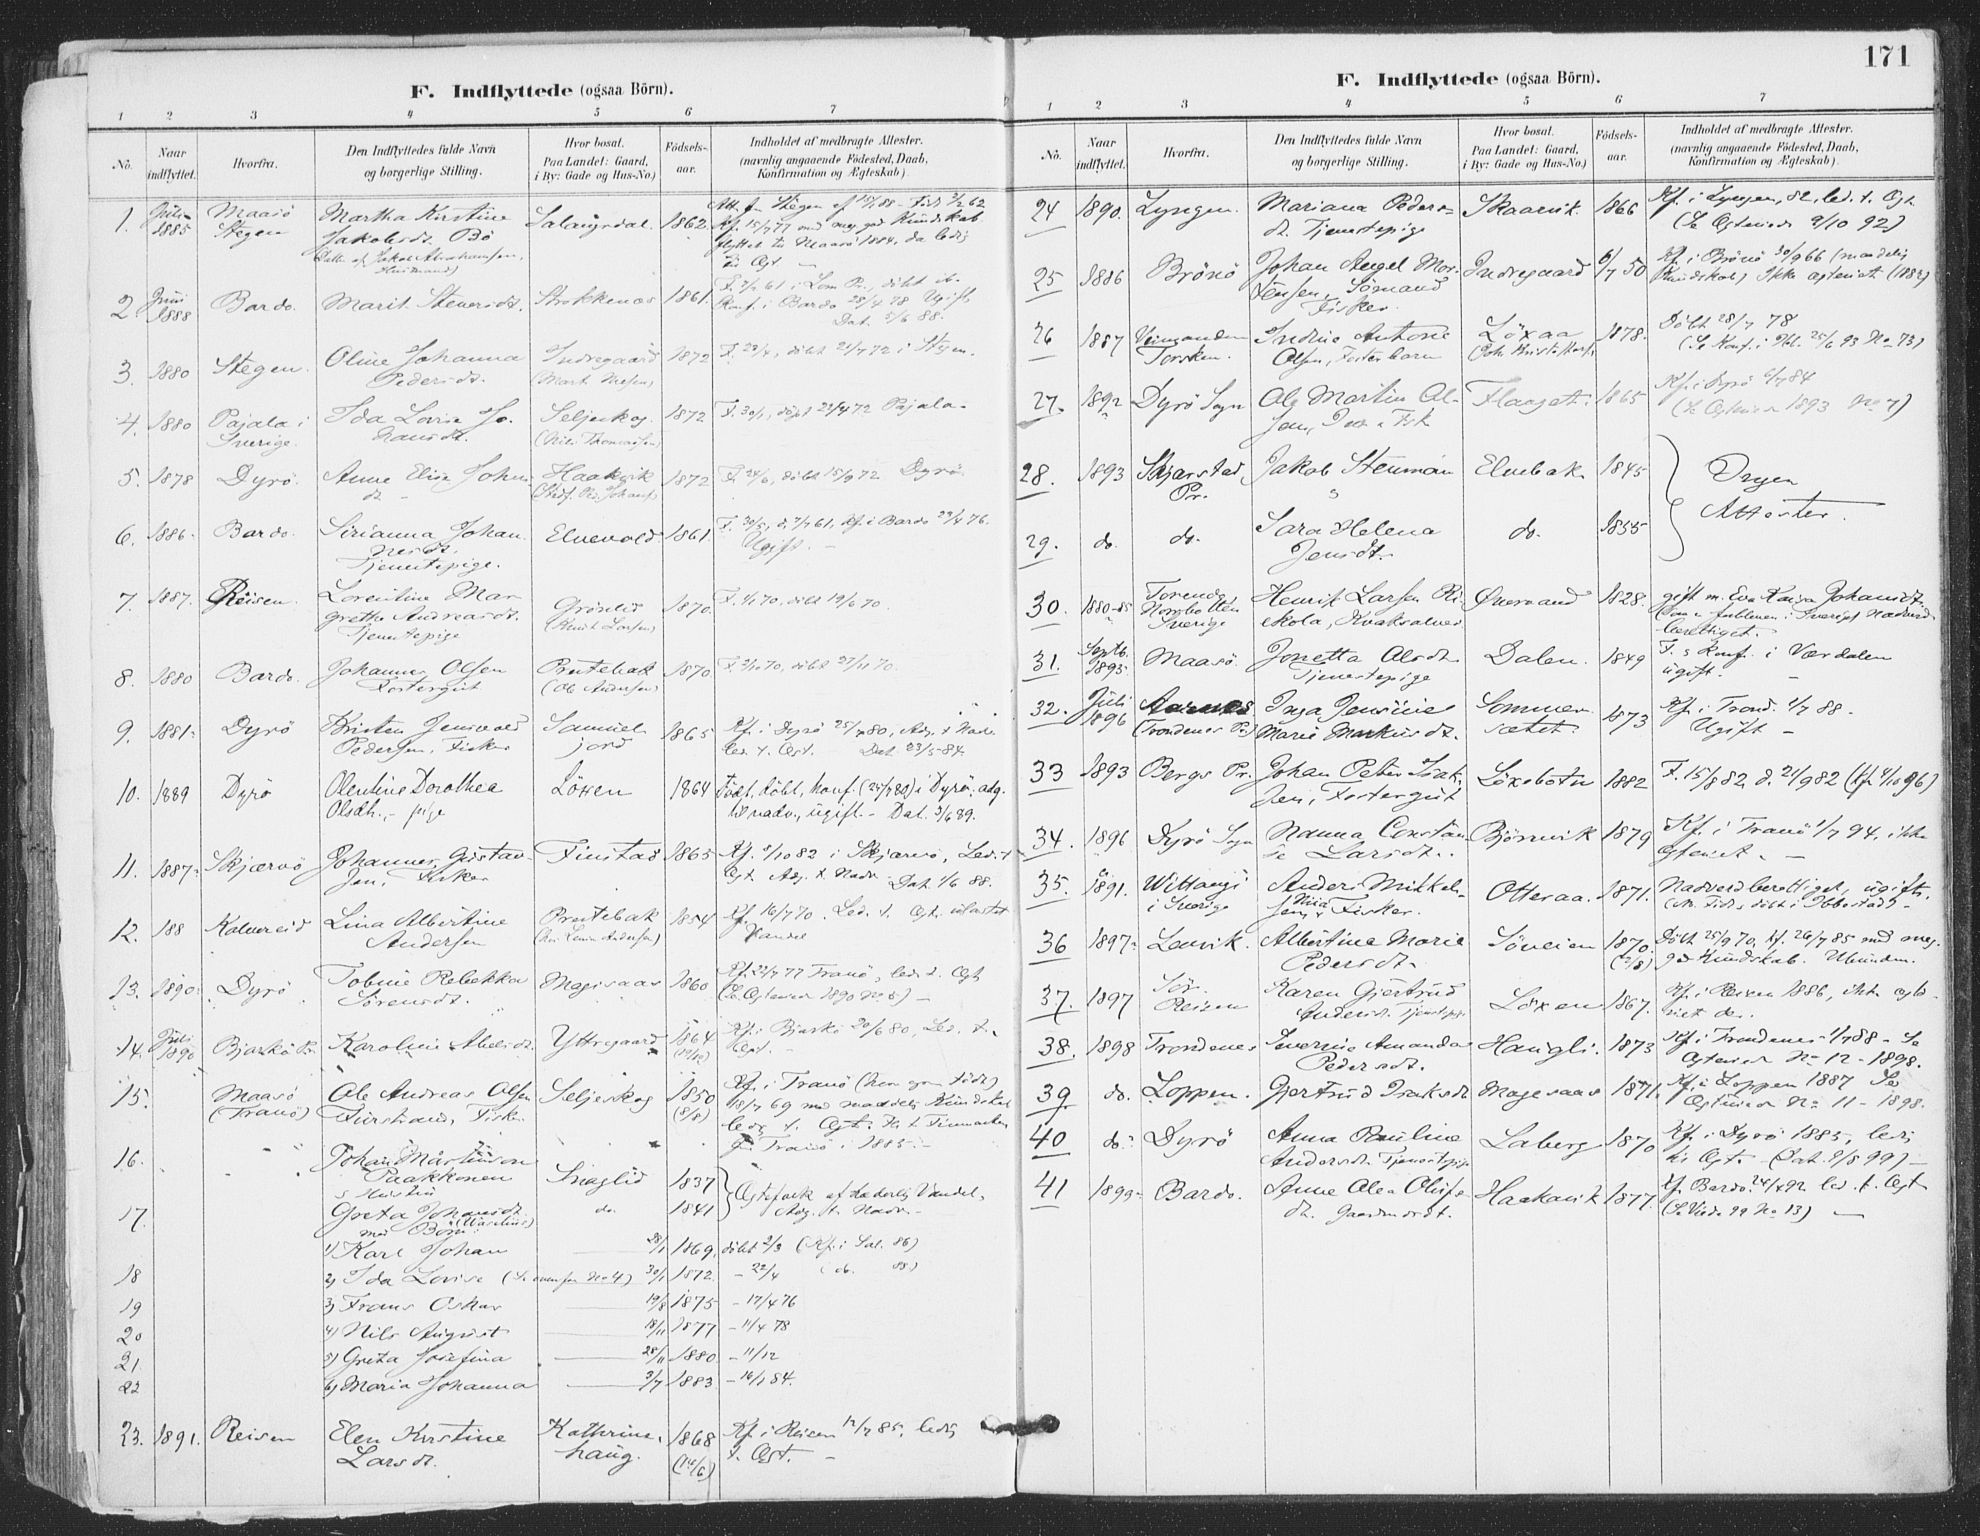 171
F. Indflyttede (ogsaa Börn).
1 2 3 4 5 6 7
No. Naar indflyttet. Hvorfra. Den Indflyttedes fulde Navn og borgerlige Stilling. Hvor bosat. Paa Landet: Gaard, i By: Gade og Hus-No.) Födsels-aar. Indholdet af medbragte Attester. (navnlig angaaende Födested, Daab, Konfirmation og Ægteskab).
1. Juli 1885 Maasö Stegen
Martha Kirstine
Jakobsdt. Bö
Salangsdal. 1862.
2 Juni 1888 Bardo. Marit Steversdt. Stokkenes 1861.
Konf. i Bardo 28/4 78 Ugift
Dat. 5/6 88.
3. 1880 Stegen. Oline Johanna
Pedersdt.
Indregaard 1872
döbt 21/7 72 i Stegen.
4. 1880 Pajala i
Sverige.
Ida Lovise Jo-
hansdt.
Seljeskog 1872
F. 30/1, döpt 22/4 72 Pajala.
5. 1878 Dyrö. Anne Elise Johns
dt.
Haakvik 1872
F. 24/6, döbt 15/9 72 Dyrö.
6. 1886. Bardo. Sirianna Johan
nesdt.
Tjenestepige.
Elvevold 1861
Kf. i Bardo 23/4 76.
Ugift.
7. 1887. Reisen. Lorentine Mar
grethe Andreasdt.
Tjenestepige
Grönlid 1870.
döbt 19/6 70.
8. 1880 Bardo. Johannes Olsen
Fostergut
Prestebak 1870.
(Ole Andersen)
döbt 27/11 70.
9. 1881. Dyrö Kristen Jensvold
Pedersen, Fisker
Samuel
jord
1865
Kf. i Dyrö 25/7 80, Adg. t. Nadv.
led. t. Ægt. Dat. 23/5 84.
10. 1889 Dyrö Olentine Dorothea
Olsdt., pige
Löxen 1864
Födt, döbt, konf. (25/7 80) i Dyrö; adg.
til nadv., ugift. - Dat. 3/6 89.
11. 1887. Skjærvö Johannes Gustav
Jens., Fisker
Finstad 1865
Kf. 1/10 82 i Skjærvö, Led. t
Ægt. Adg. t. Nadv. Dat. 1/6 88.
12. 188 Kalvereid Lina Albertine
Andersen
Prestebak 1854
Kf. 16/7 70. Led. t. Ægt. ulastet
Vandel
13. 1890. Dyrö Tobine Rebekka
Sörensdt.
Magesaas 1860
Kf. 22/7 77 Tranö, led. t. Ægt
(Se Ægteviede 1890 No 5)
14. Juli 1890 Bjarkö Pr. Karoline Abelsdt. Yttregaard 1864
Kf. i Bjarkö 20/6 80, Led. t.
Ægt.
15. Maasö
(Tranö)
Ole Andreas Olsen
Finstrand, Fisker
Seljeskog 1850
(8/8)
Kf. i Tranö (hen ogsaa födt)
18/7 69 med maadelig Kundskab
ledig t. Ægt. Fl. t. Finmarken
fra Tranö i 1885.
16. Johan Martinson
Paakkonen
Snaglid 1837
Ægtefolk af hæderlig Vandel,
Adg. t. Nadv.
17. Greta Johansdt.
med Börn
do. 1841
1) Karl Johan 28/1 1869. döbt 2/3 (Kf. i Sal. 86)
18 2) Ida Lovise (Se ovenfor No 4) 30/1 1872. - 22/4 (do. 88)
19 3) Frans Oskar 19/8 1875 - 17/4 76
20 4) Nils August 18/11 1877 - 11/4 78
21. 5) Greta Josefina 28/11 1880. - 11/12
22 6) Maria Johanna 3/7 1883. - 16/1 84.
23. 1891. Reisen Elen Kirstine
Larsdt.
Kathrine
haug.
1868
(14/6)
Kf. i Reisen 12/7 85, ledig
t. Ægt.
F. Indflyttede (ogsaa Börn).
1 2 3 4 5 6 7
No. Naar indflyttet. Hvorfra. Den Indflyttedes fulde Navn og borgerlige Stilling. Hvor bosat. Paa Landet: Gaard, i By: Gade og Hus-No.) Födsels-aar. Indholdet af medbragte Attester. (navnlig angaaende Födested, Daab, Konfirmation og Ægteskab).
24 1890. Lyngen. Mariana Peders-
dt. Tjenestepige
Skaarvik. 1866
Kf. i Lyngen, 82, led. t. Ægt.
(Se Ægteviede 9/10 92)
25 1886 Brönö Johan Angel Mor-
tensen, Sömand
Fisker
Indregaard 6/7 50
Kf. i Brönö 30/9 66 (maadelig
Kundskab) Ikke ægteviet (1882)
26 1887 Torsken. Indine Antone
Olsen, Fosterbarn
Löxaa 1878.
Döbt 28/7 78
(Se Konf. i Ibb. 25/6 93 No 73)
27. 1892 Dyrö Sogn Ole Martin Ol-
sen,
Flaaget. 1865
Kf. i Dyrö 6/7 84
(Se Ægteviede 1893 No 7)
28. 1893 Skjerstad
Pr.
Jakob Stenman Elvebak 1845
Ingen
Attester.
29. do. do. Sara Helena
Jensdt.
do. 1855
30. 1880-85 Torneå
Norrbotten
Sverige
Henrik Larsen Ri-
skola, Kvaksalver
Övervand 1828.
gift m. Eva Kaisa Johansdt.
berettiget.
31. Septb. 1895 Maasö. Jonetta Olsdt.
Tjenestepige
Dalen. 1849
F. & Konf. i Værdalen
ugift.
32. Juli 1896 Aarnes
(Trondenes Pr.)
Inga Jensine
Marie Markusdt.
Sommer
sætet.
1873
Kf. i Trond. 1/7 88.
Ugift
33 1893 Bergs Pr. Johan Peter Isak-
sen, Fostergut
Löxebotn 1882
F. 15/8 82, d. 21/9 82 (Kf. 4/10 96)
34. 1896 Dyrö Sogn Nanna Constan
se Larsdt.
Björnvik 1879
Kf. i Tranö 1/7 94, ikke
ægteviet.
35. 1891. Wittangi
i Sverige
Anders Mikkel-
sen Fisker.
Otteraa. 1871.
Nadverdberettiget, ugift.
36 1897. Lenvik. Albertine Marie
Pedersdt.
Söveien 1870.
(12/8)
Döbt 25/9 70, kf. 26/7 85 med meg.
gd Kundskab. Ubunden.
37. 1897 Sör-
Reisen
Karen Gjertrud
Andersdt. Tjenestepige
Löxen 1867.
Kf. i Reisen 1886, ikke ægte-
viet der.
38. 1898 Trondenes Iverine Amanda
Pedersdt.
Haugli. 1873
Kf. i Trondenes 1/7 88 - Se
Ægteviede No 12 - 1898.
39 do. Loppen. Gjertrud Isaksdt. Magesaas 1871.
Kf. i Loppen 1887 Se
Ægteviede No 11 - 1898.
40 do. Dyrö Anna Pauline
Andersdt. Tjenestepige
Laberg 1870
Kf. i Dyrö 1885, ledig
til Ægt. (Dat. 9/8 99)
41 1899. Bardo. Anne Olea Oluf-
dt. Gaardmandsdt.
Haakavik 1877.
Kf. Bardo 24/4 92 led. t. Ægt
(Se Viede 99 No 13)